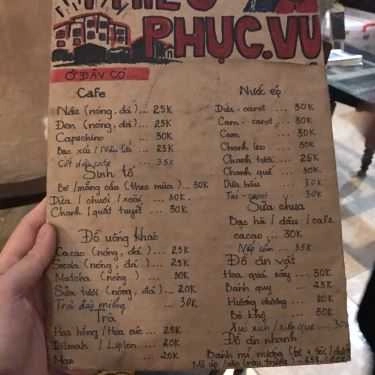 PHỤC.VỤ
Ở ĐÂY CÓ
Cafe
Nâu (nóng, đá) ... 25K
Đen (nóng, đá) ... 25K
Capuchino ... 30K
35K
Sinh tố
Bơ / mãng cầu (theo mùa) .. 30K
Dừa / chuối / xoài ... 30K
Chanh / quất tuyết ... 30K
Đồ uống khác
Cacao (nóng, đá) ... 25K
Socola (nóng, đá) ... 25K
Matcha (nóng) ... 30K
Sữa tươi (nóng, đá) .. 20K
Trà đào miếng ... 30K
Trà
Hoa hồng / Hoa cúc ... 25K
Dilmah / Lipton ... 20K
20K
Nước ép
Dứa - carot ... 30K
Cam - carot ... 30K
Cam ... 30K
Chanh leo ... 30K
Chanh tươi ... 25K
Chanh quế ... 30K
Dưa hấu ... 30K
Táo - carot ... 30K
Sữa chua
Bạc hà / dâu / cafe
cacao ... 30K
Nếp cẩm .. 35K
Đồ ăn vặt
Hoa quả sấy ... 30K
Bánh quy ... 25K
Hướng dương ... 20K
Bò khô ... 30K
30K
Đồ ăn nhanh
Bánh mì nướng